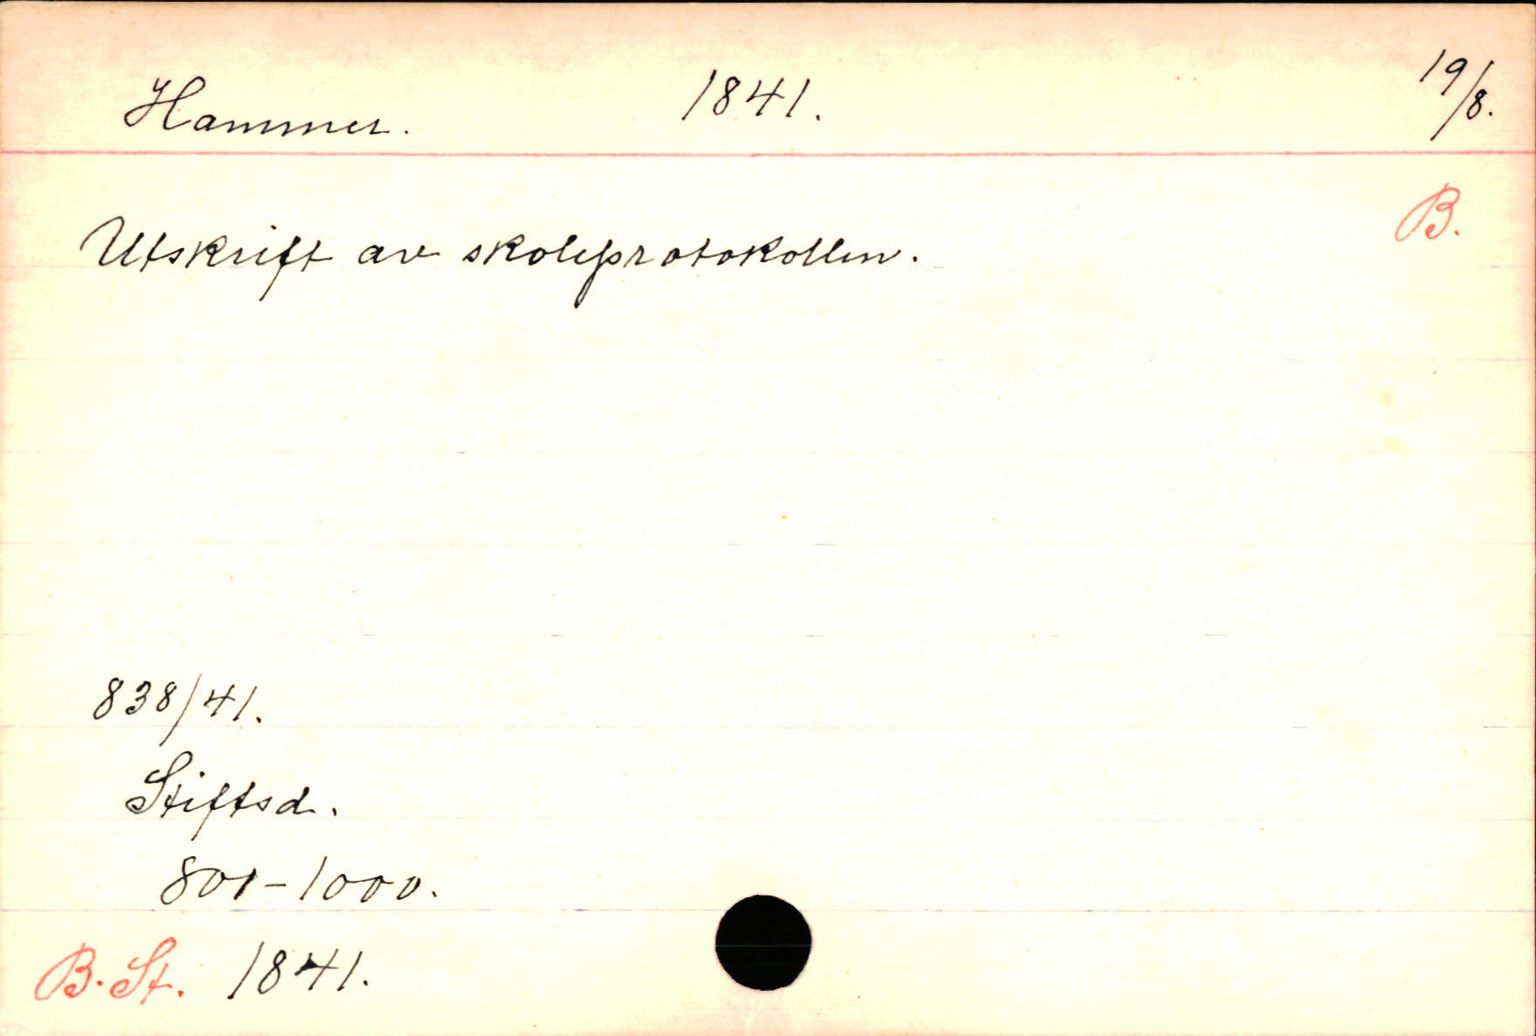 Hammer. 1841. 19/8.
B.
Utskrift av skoleprotokollen.
838/41.
Stiftsd.
801-1000.
B. St. 1841.